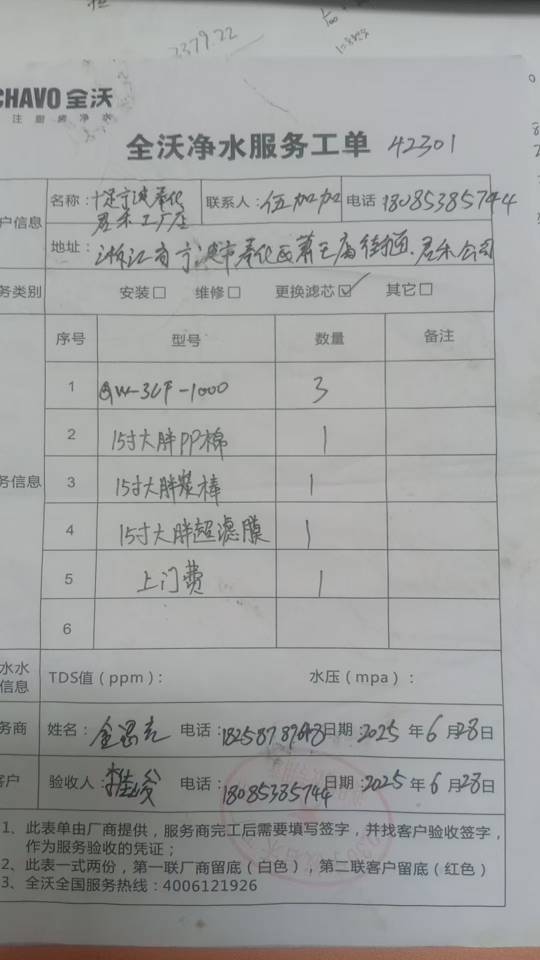 2379.22
CHAVO 全沃
注册商净水
全沃净水服务工单 42301
户信息
名称：十足宁波奉化
君禾工厂店
联系人：伍加加
电话 18085385744
地址：浙江省宁波市奉化区萧王庙街道君禾公司
务类别 安装□ 维修□ 更换滤芯☑ 其它□
序号 型号 数量 备注
务信息
1 QW-3CF-1000 3
2 15寸大胖PP棉 1
3 15寸大胖炭棒 1
4 15寸大胖超滤膜 1
5 上门费 1
6
水水
信息
TDS值（ppm）： 水压（mpa）：
务商 姓名： 电话： 日期：2025年6月28日
客户 验收人： 电话：18085385744 日期：2025年6月28日
1、此表单由厂商提供，服务商完工后需要填写签字，并找客户验收签字，
作为服务验收的凭证；
2、此表一式两份，第一联厂商留底（白色），第二联客户留底（红色）
3、全沃全国服务热线：4006121926